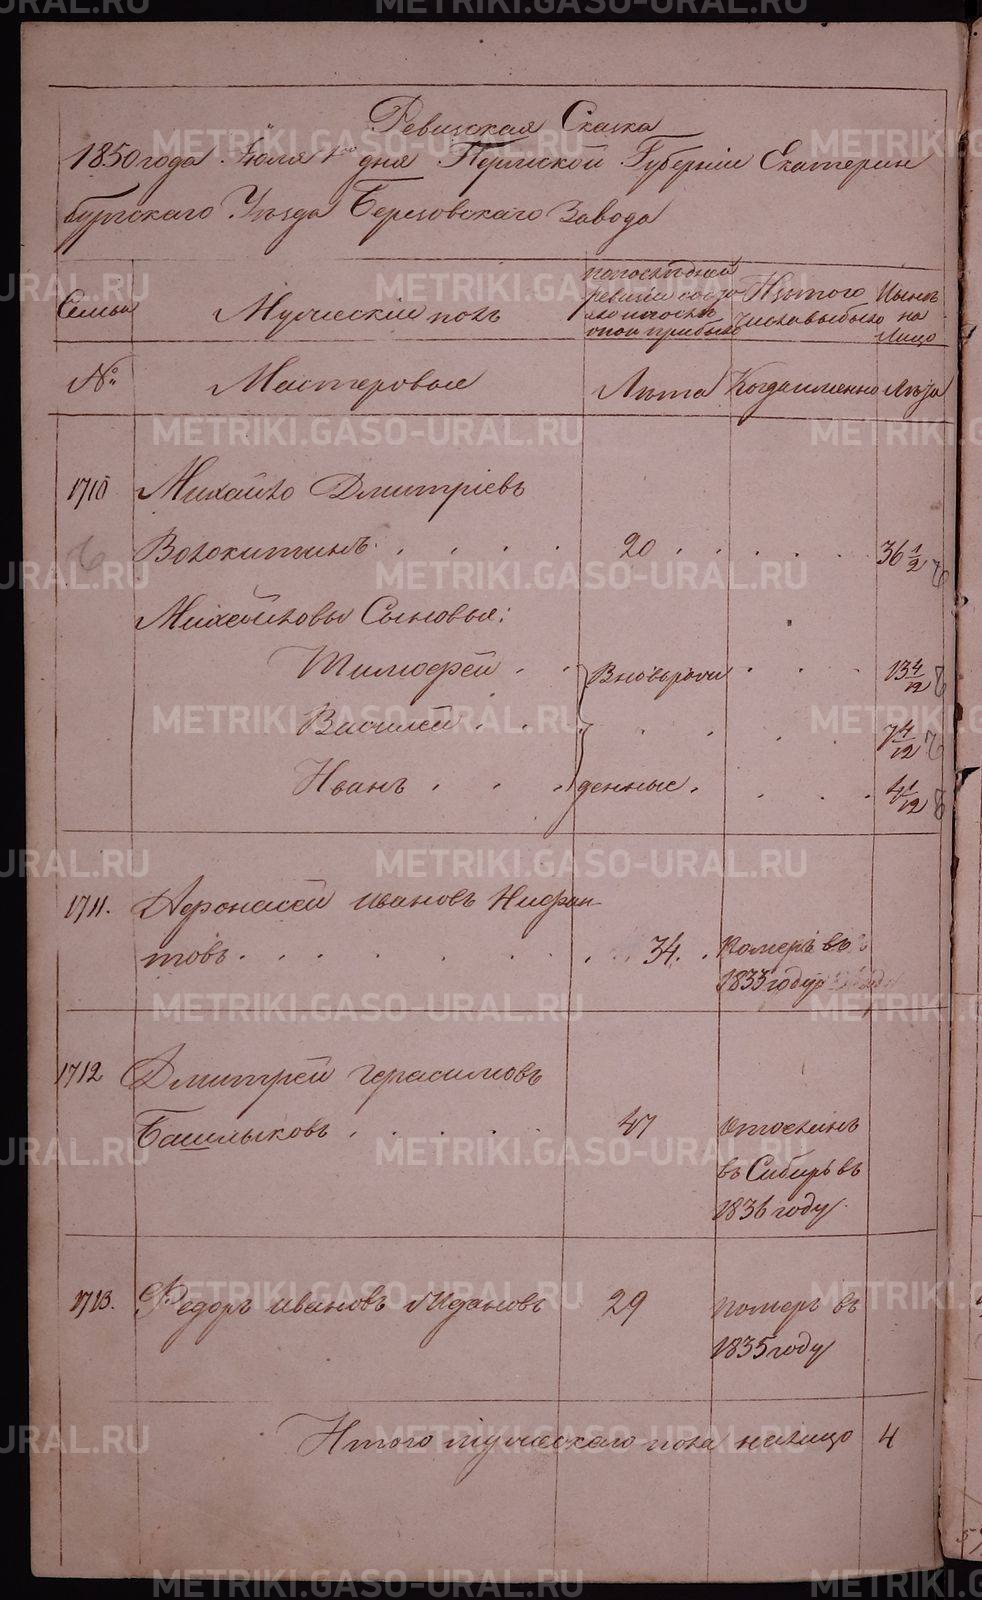 Ревизская Сказка
1850 года Іюля 1го дня Пермской Губерніи Екатерин
бургскаго Уѣзда Березовскаго Завода
Семьи
Мужескій полъ
по последней ревизіи состояло и после оной прибыло
Изъ того числа выбыло
Нынѣ на лицо
№
Мастеровые
Лѣта
Когда именно
Лѣта
1710
Михайло Дмитріевъ
Волокитинъ
20
36 1/2
Михайловы Сыновья:
Тимофей
Вновь рож
13 4/12
Василей
7 4/12
Иванъ
денные
4 1/12
1711.
Афонасей Ивановъ Нифан
товъ
34.
Померъ въ
1835 году
1712
Дмитрей Герасимовъ
Башлыковъ
47
Отосланъ
въ Сибирь въ
1836 году
1713.
Федоръ Ивановъ Ждановъ
29
померъ въ
1835 году
Итого мужескаго пола налицо 4
METRIKI.GASO-URAL.RU